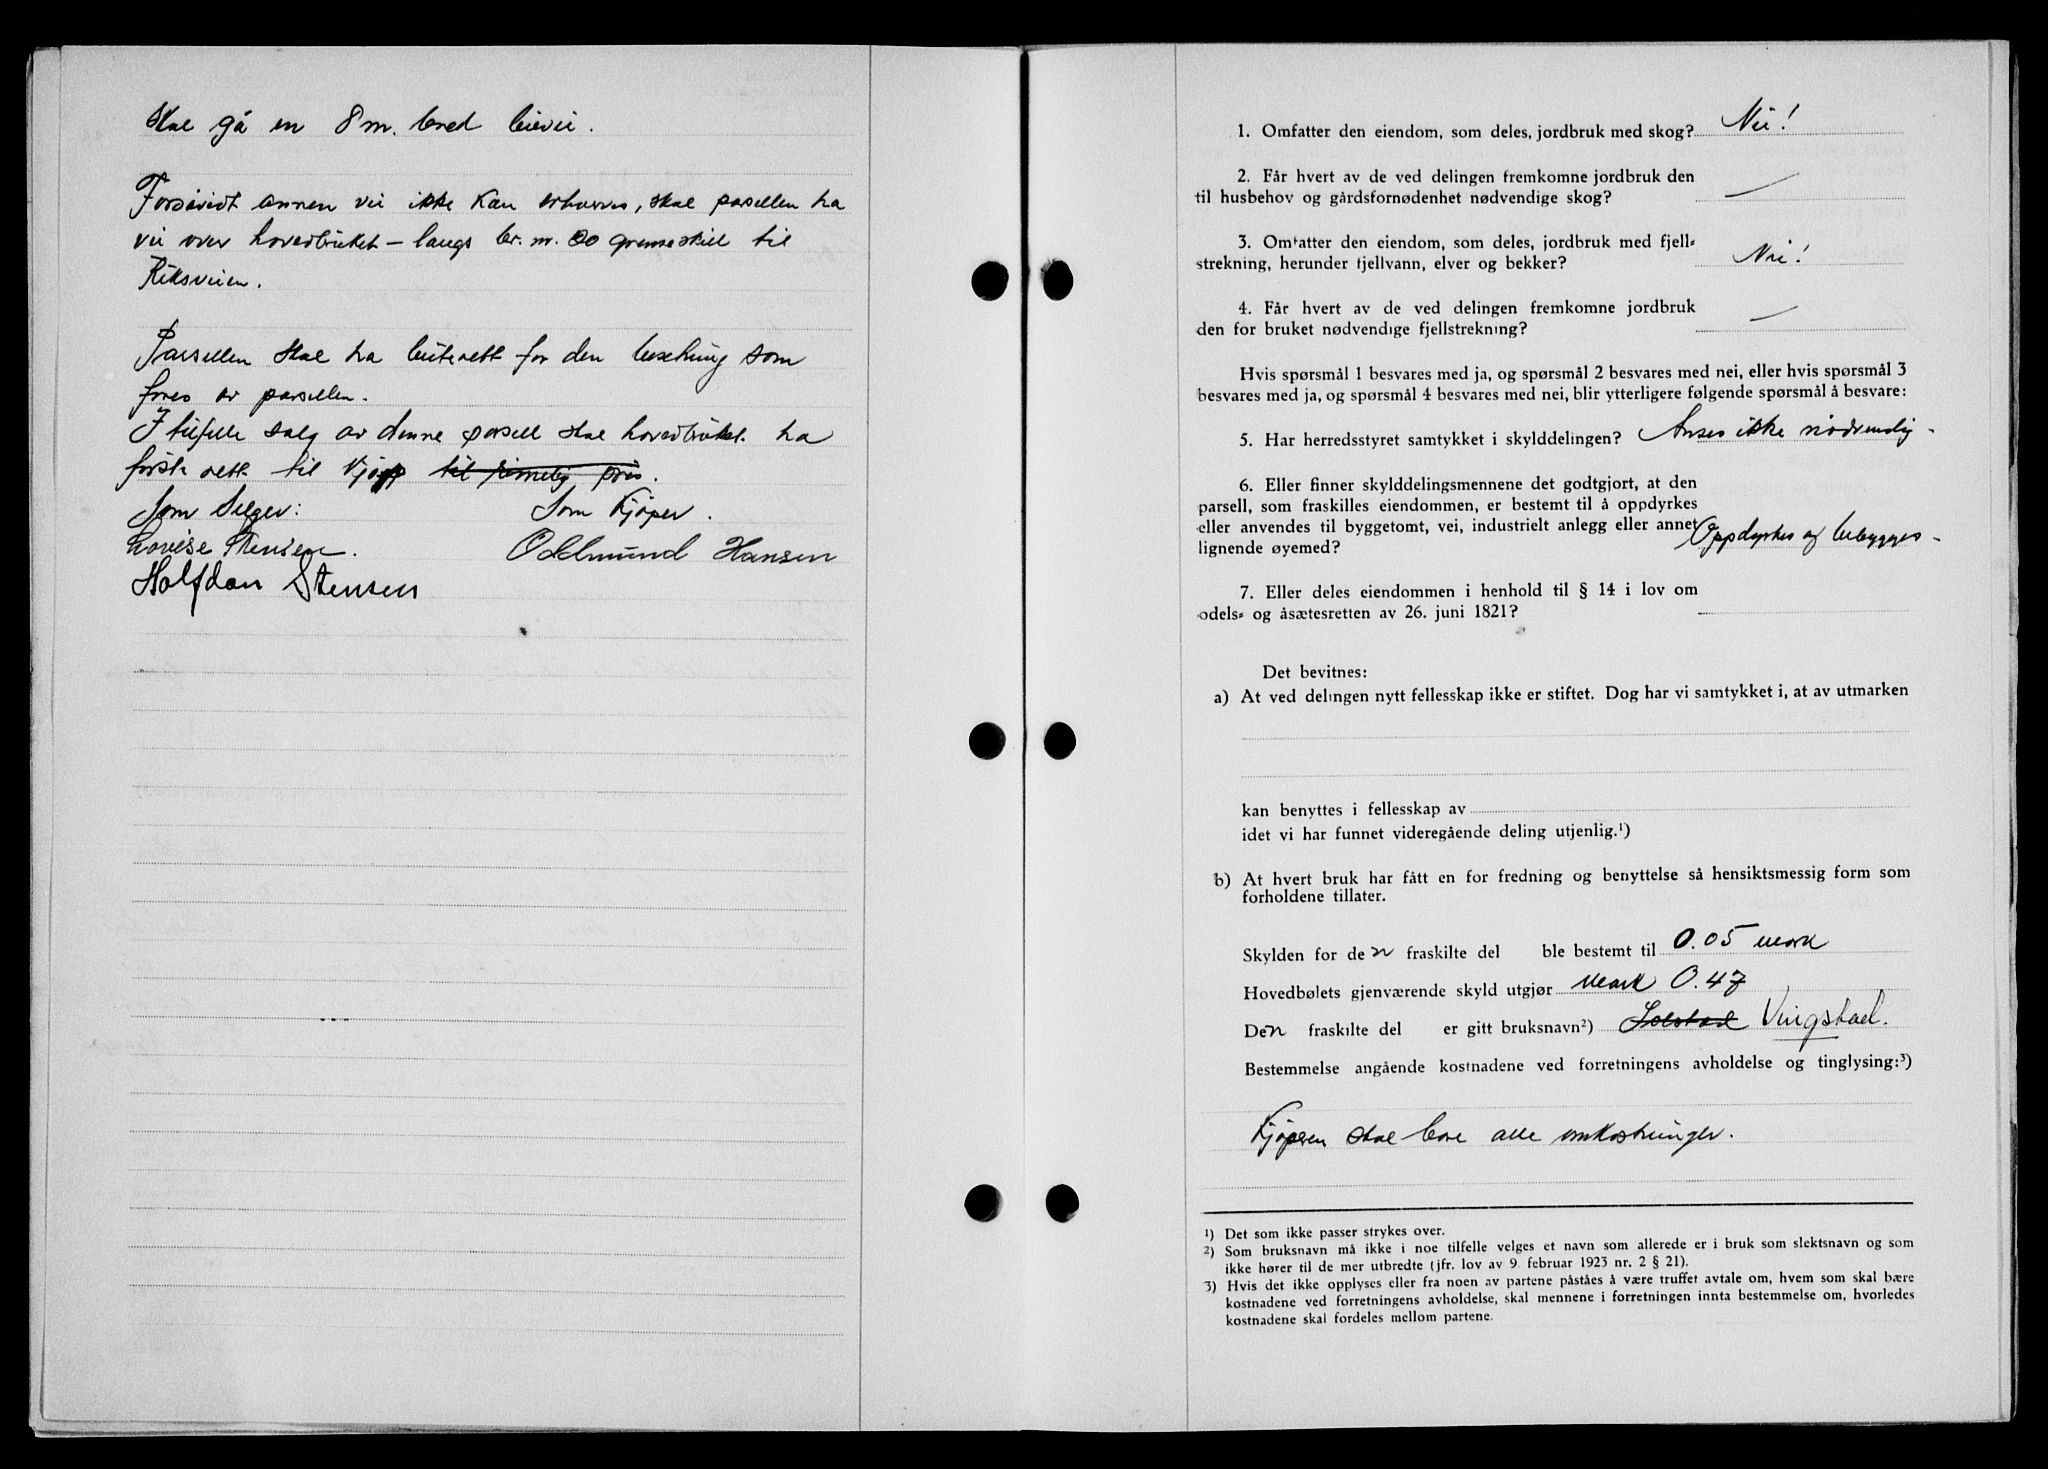 Skal gå en 8 m. bred bivei.
Forsåvidt annen vei ikke kan erhverves, skal parsellen ha
vei over hovedbruket – langs br. nr. 20 grenseskill til
Riksveien.
Parsellen skal ha beiterett for den besetning som
fores av parsellen.
I tilfelle salg av denne parsell skal hovedbruket ha
første rett til kjøp til rimelig pris.
Som Selger: Som Kjøper.
Lovise Stensen. Oddmund Hansen
Halfdan Stensen
1. Omfatter den eiendom, som deles, jordbruk med skog? Nei!
2. Får hvert av de ved delingen fremkomne jordbruk den
til husbehov og gårdsfornødenhet nødvendige skog? —
3. Omfatter den eiendom, som deles, jordbruk med fjell-
strekning, herunder fjellvann, elver og bekker? Nei!
4. Får hvert av de ved delingen fremkomne jordbruk
den for bruket nødvendige fjellstrekning? —
Hvis spørsmål 1 besvares med ja, og spørsmål 2 besvares med nei, eller hvis spørsmål 3
besvares med ja, og spørsmål 4 besvares med nei, blir ytterligere følgende spørsmål å besvare:
5. Har herredsstyret samtykket i skylddelingen? Anses ikke nødvendig -
6. Eller finner skylddelingsmennene det godtgjort, at den
parsell, som fraskilles eiendommen, er bestemt til å oppdyrkes
eller anvendes til byggetomt, vei, industrielt anlegg eller annet
lignende øyemed? Oppdyrkes og bebygges -
7. Eller deles eiendommen i henhold til § 14 i lov om
odels- og åsætesretten av 26. juni 1821?
Det bevitnes:
a) At ved delingen nytt fellesskap ikke er stiftet. Dog har vi samtykket i, at av utmarken
kan benyttes i fellesskap av
idet vi har funnet videregående deling utjenlig.¹)
b) At hvert bruk har fått en for fredning og benyttelse så hensiktsmessig form som
forholdene tillater.
Skylden for den fraskilte del ble bestemt til 0.05 mark
Hovedbølets gjenværende skyld utgjør Mark 0.47
Den fraskilte del er gitt bruksnavn²) Solstad Vingstad.
Bestemmelse angående kostnadene ved forretningens avholdelse og tinglysing:³)
Kjøperen skal bære alle omkostninger.
¹) Det som ikke passer strykes over.
²) Som bruksnavn må ikke i noe tilfelle velges et navn som allerede er i bruk som slektsnavn og som
ikke hører til de mer utbredte (jfr. lov av 9. februar 1923 nr. 2 § 21).
³) Hvis det ikke opplyses eller fra noen av partene påstås å være truffet avtale om, hvem som skal bære
kostnadene ved forretningens avholdelse, skal mennene i forretningen innta bestemmelse om, hvorledes
kostnadene skal fordeles mellom partene.